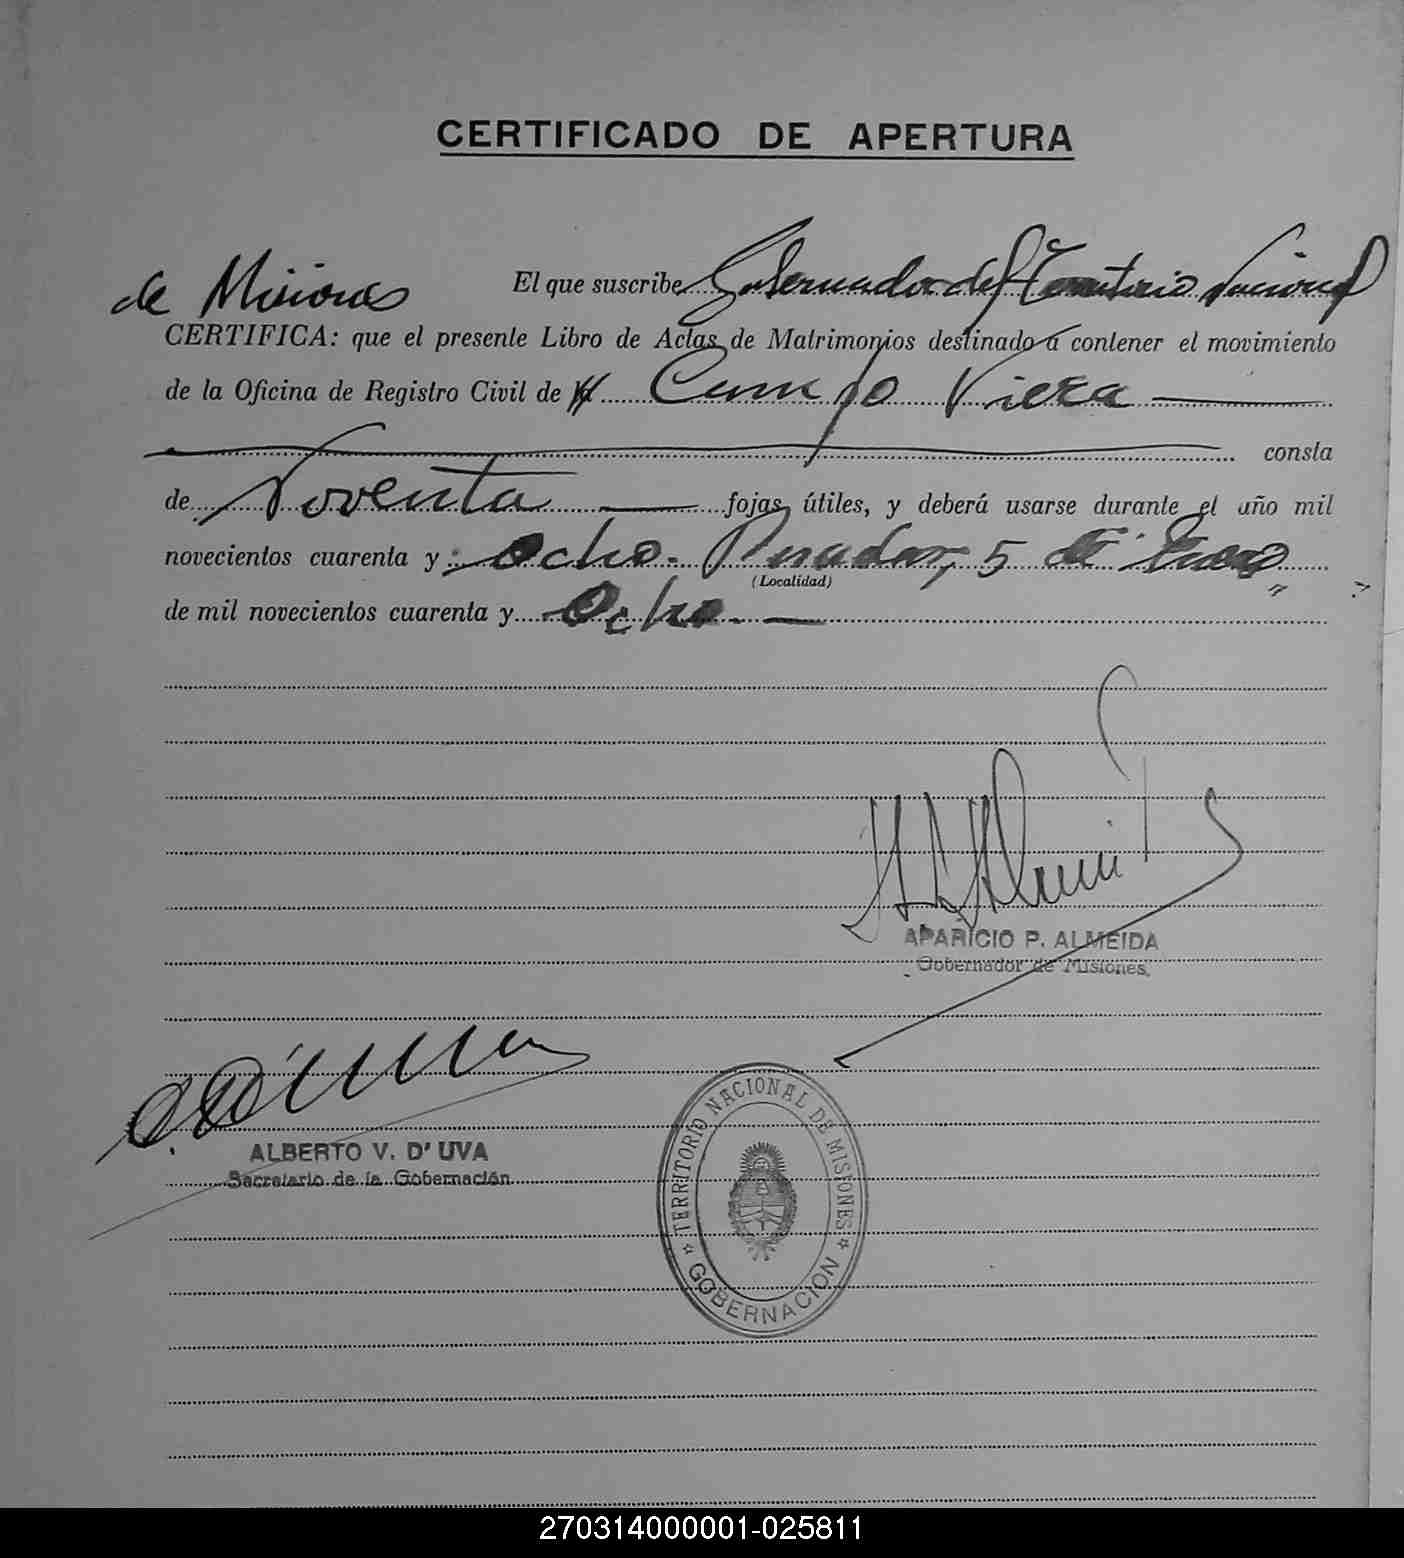 CERTIFICADO DE APERTURA
El que suscribe Gobernador del Territorio Nacional
de Misiones
CERTIFICA: que el presente Libro de Actas de Matrimonios destinado a contener el movimiento
de la Oficina de Registro Civil de Campo Viera
consta
de Noventa fojas útiles, y deberá usarse durante el año mil
novecientos cuarenta y Ocho. Posadas, 5 de Enero
(Localidad)
de mil novecientos cuarenta y Ocho.
APARICIO P. ALMEIDA
Gobernador de Misiones
ALBERTO V. D'UVA
Secretario de la Gobernación
TERRITORIO NACIONAL DE MISIONES
GOBERNACION
270314000001-025811